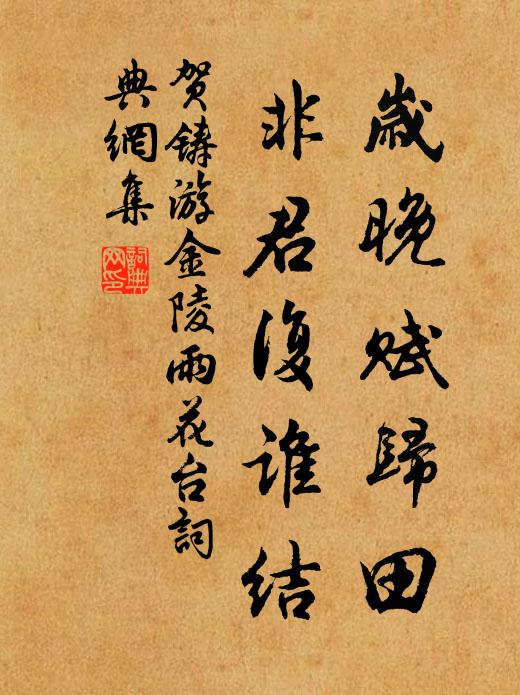 歲晚赋歸田
非君復谁结
贺鑄游金陵雨花台詞
典網集
詞典
网印